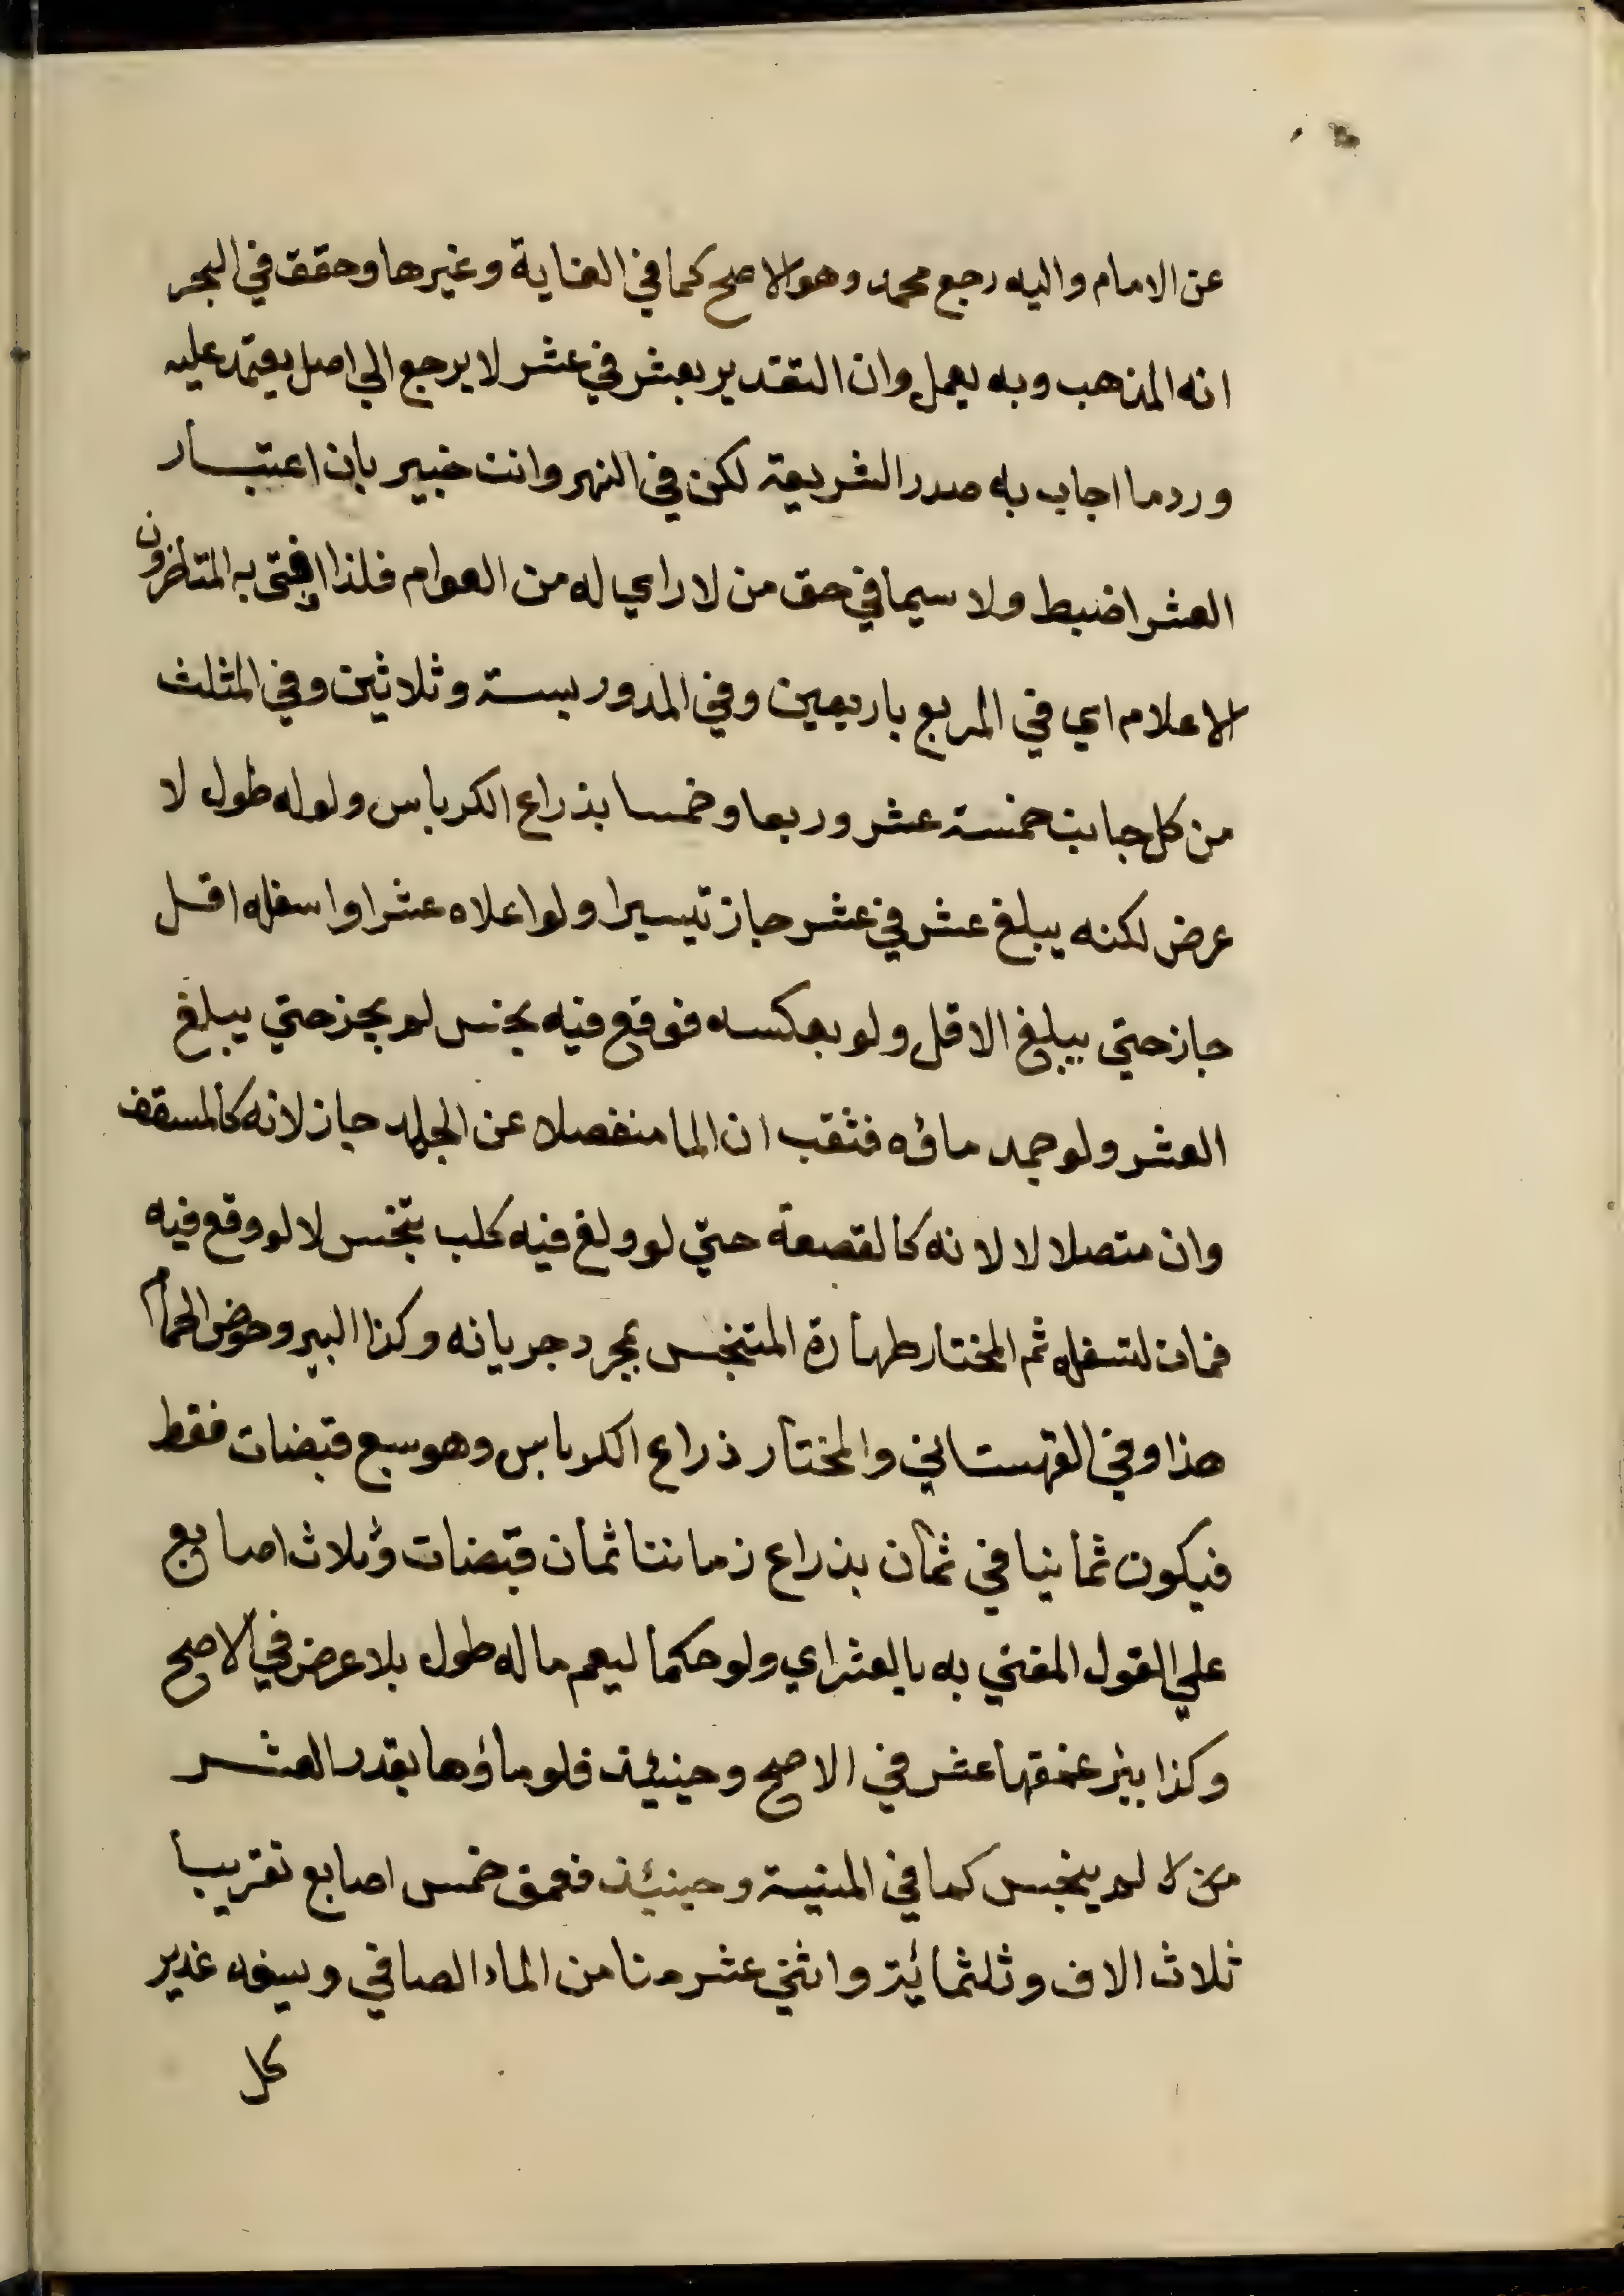 عن الامام واليه رجع محمد وهو الاصح كما في العناية وغيرها وحقق في البحر
انه المذهب وبه يعمل وان التقدير بعشر في عشر لا يرجع الي اصل يعتمد عليه
ورد ما اجاب به صدر الشريعة لكن في النهر وانت خبير بان اعتبار
العشر اضبط ولا سيما في حق من لا راي له من العوام فلذا افتى به المتاخرون
الاعلام اي في المربع باربعين وفي المدور بستة وثلاثين وفي المثلث
من كل جانب خمسة عشر وربعا وخمسا بذراع الكرباس ولو له طول لا
عرض لكنه يبلغ عشر في عشر جاز تيسيرا ولو اعلاه عشرا واسفله اقل
جاز حتي يبلغ الاقل ولو بعكسه فوقع فيه نجس لم يجز حتي يبلغ
العشر ولو جمد ماؤه فثقب ان الما منفصلا عن الجلد جاز لانه كالمسقف
وان متصلا لا لانه كالقصعة حتي لو ولغ فيه كلب تنجس لا لو وقع فيه
فمات لتسفله ثم المختار طهارة المتنجس بمجرد جريانه وكذا البير وحوض الحمام
هذا وفي القهستاني والمختار ذراع الكرباس وهو سبع قبضات فقط
فيكون ثمانيا في ثمان بذراع زماننا ثمان قبضات وثلاث اصابع
علي القول المفتي به بالعشر اي ولو حكما ليعم ما له طول بلا عرض في الاصح
وكذا بئر عمقها عشر في الاصح وحينئذ فلو ماؤها بقدر العشر
لم ينجس كما في المنية وحينئذ فعمق خمس اصابع تقريبا
ثلاث الاف وثلثمائة واثني عشر منا من الماء الصافي ويسعه غدير
كل